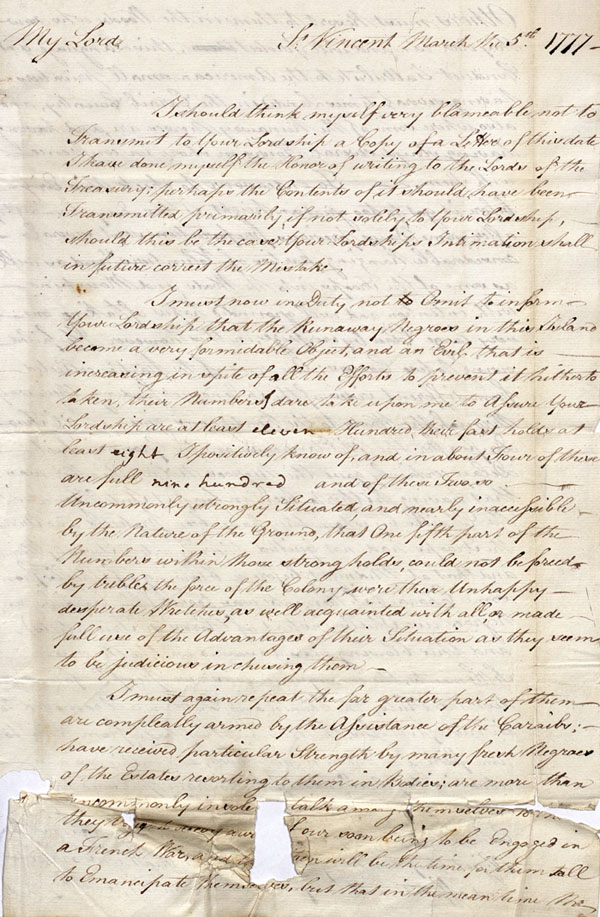 My Lord St. Vincent March the 5th. 1777 -
I should think myself very blameable not to
Transmit to Your Lordship a Copy of a Letter of this date
I have done myself the Honor of writing to the Lords of the
Treasury; perhaps the Contents of it should have been
Transmitted primarily, if not solely to Your Lordship,
should this be the case, Your Lordships Intimation shall
in future correct the Mistake.
I must now in Duty not to Omit to inform
Your Lordship that the Runaway Negroes in this Island
become a very formidable Object, and an Evil that is
increasing in spite of all the Efforts to prevent it hitherto
taken, their Numbers I dare take upon me to Assure Your
Lordship are at least eleven Hundred, their fast holds at
least eight I positively know of, and in about Four of these
are full nine hundred and of these Two so
Uncommonly strongly Situated and nearly inaccessible
by the Nature of the Ground, that One fifth part of the
Numbers within those strong holds, could not be forced
by treble the force of the Colony were these Unhappy
desperate Wretches, as well acquainted with all, or made
full use of the Advantages of their Situation as they seem
to be judicious in chusing them -
I must again repeat the far greater part of them
are compleatly armed by the Assistance of the Caraibs; -
have received particular Strength by many fresh Negroes
of the Estates resorting to them in Bodies; are more than
uncommonly talk among themselves
they of our soon being to be Engaged in
a French War, and will be the time for them all
to Emancipate themselves, but that in the mean time the